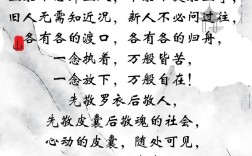 旧人无需知近况，新人不必问过往，
各有各的渡口，各有各的归舟，
一念执着，万般皆苦，
一念放下，万般自在！
先敬罗衣后敬人，
先敬皮囊后敬魂的社会，
心动的皮囊，随处可见，